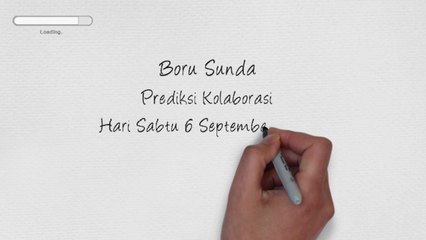 Loading.
Boru Sunda
Prediksi Kolaborasi
Hari Sabtu 6 Septembe